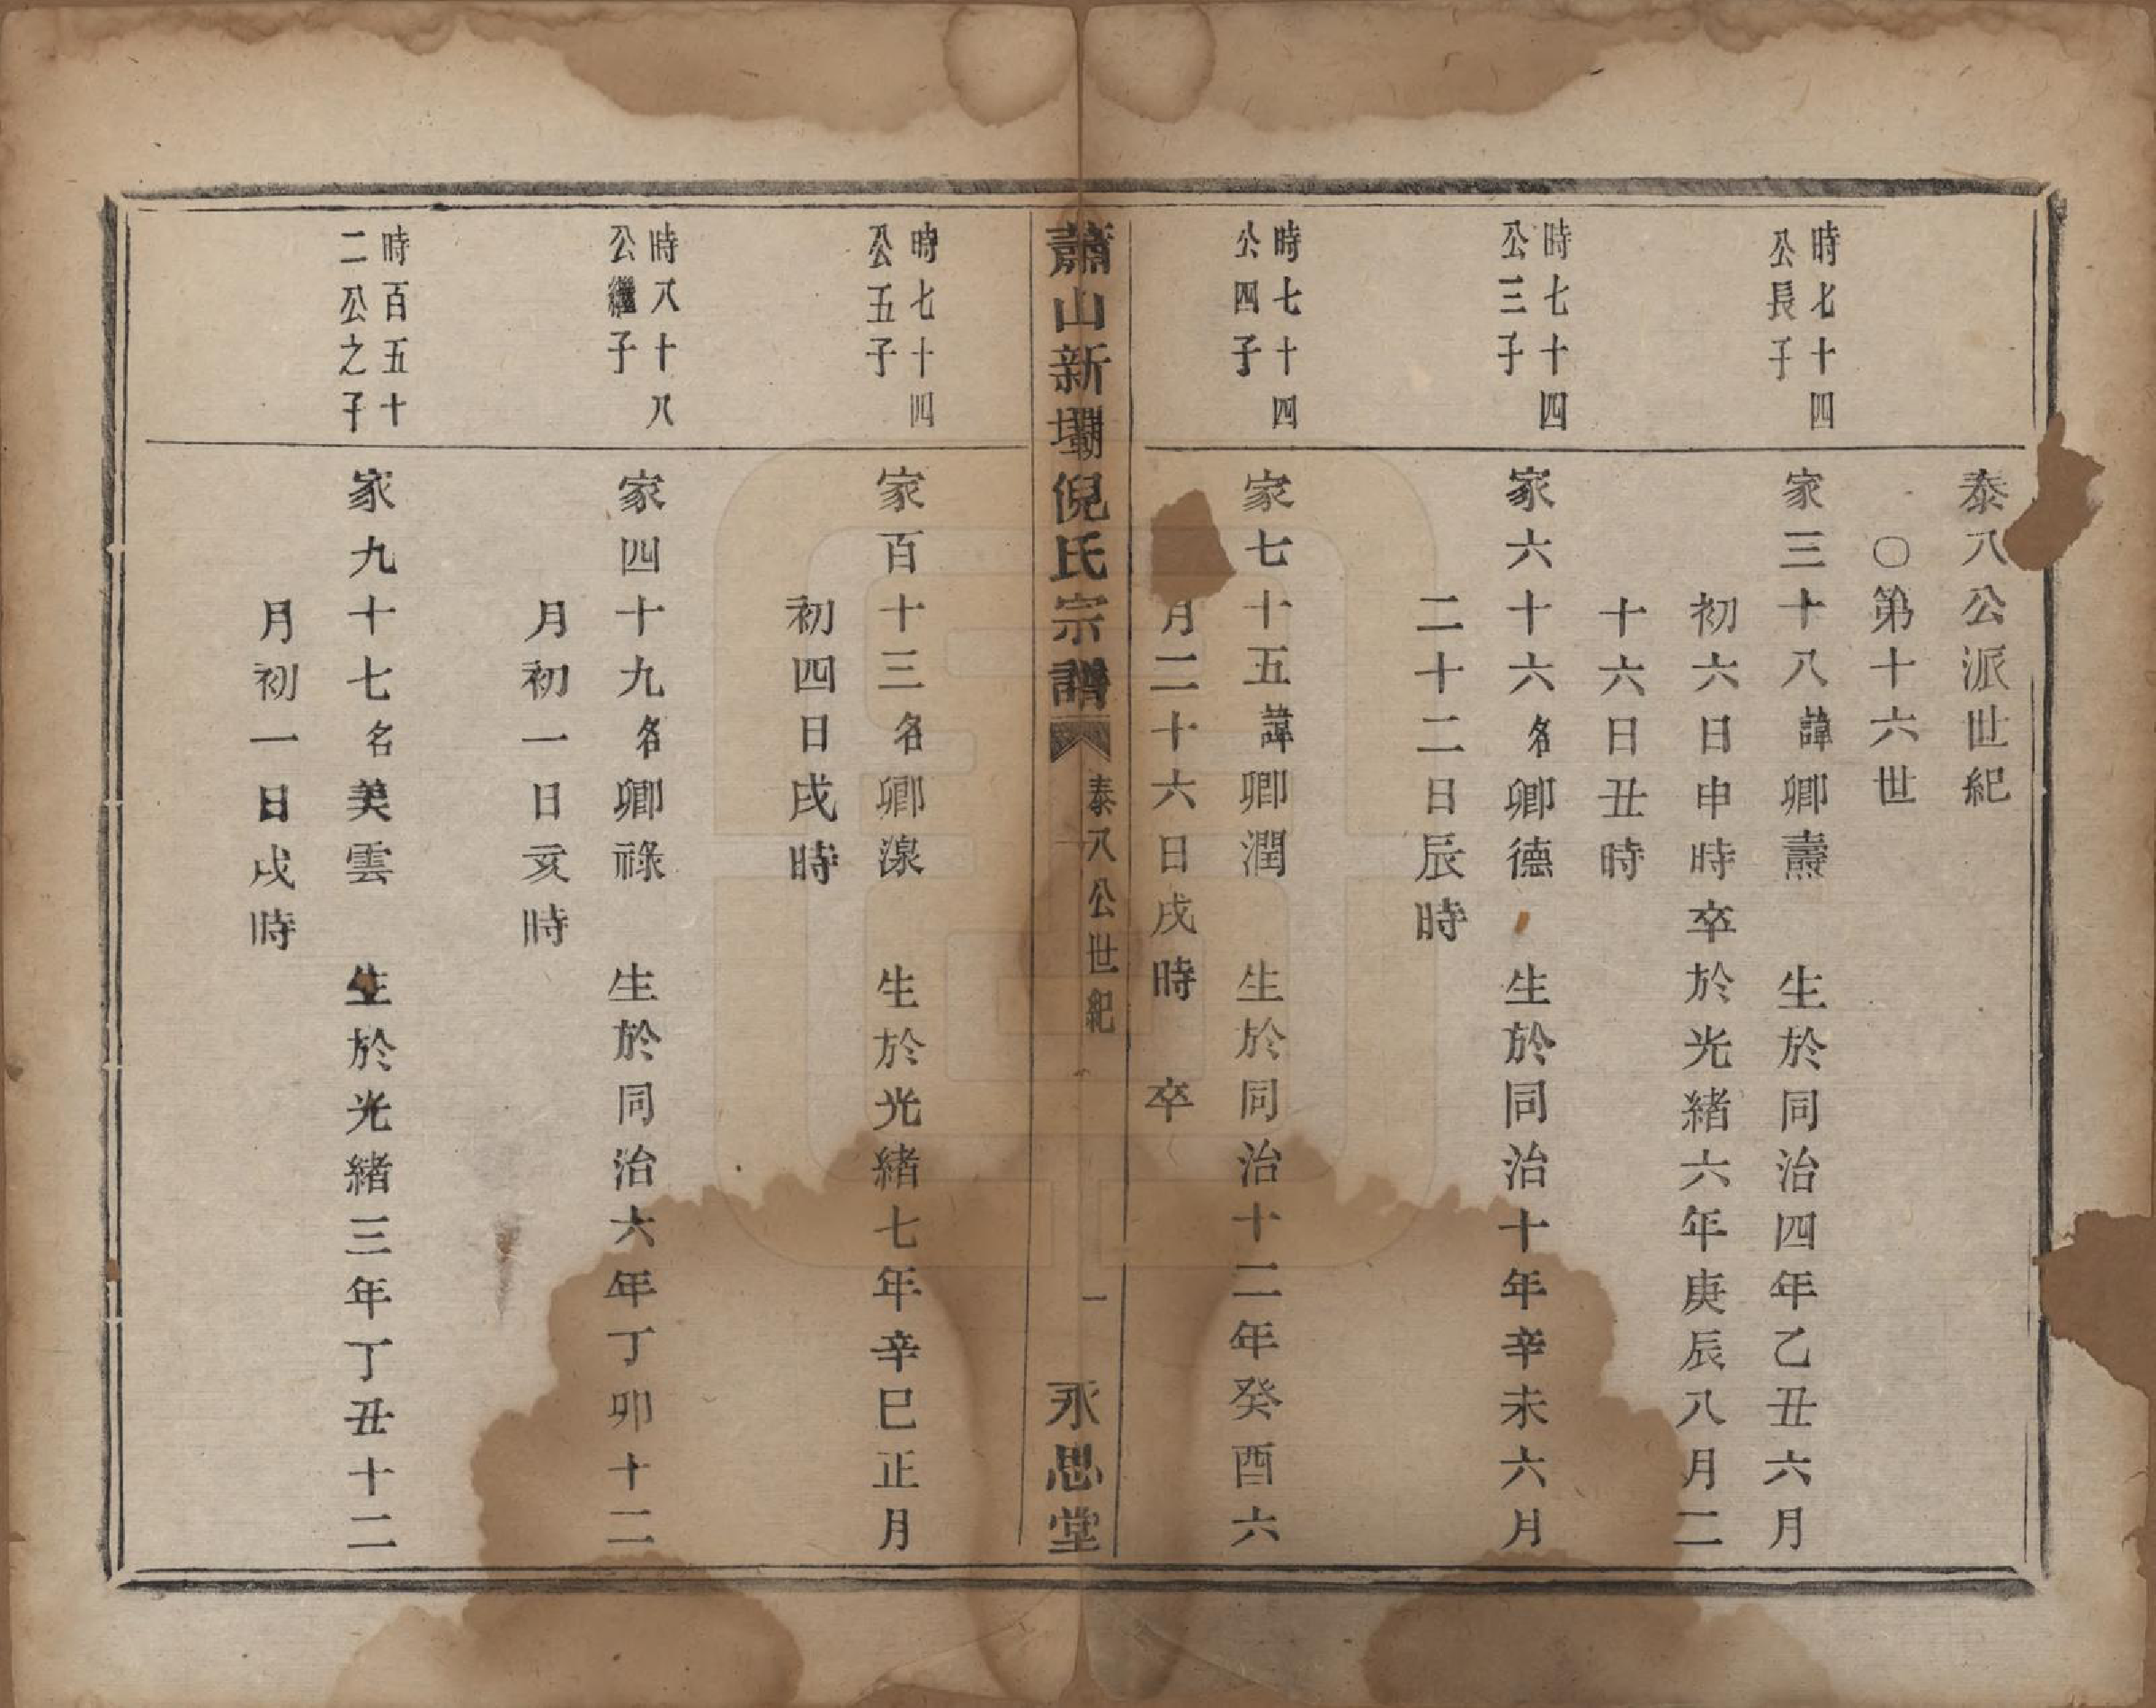 泰八公派世紀
〇第十六世
時七十四
公長子
家三十八諱卿壽　生於同治四年乙丑六月
初六日申時卒於光緒六年庚辰八月二
十六日丑時
時七十四
公三子
家六十六名卿德　生於同治十年辛未六月
二十二日辰時
時七十四
公四子
家七十五諱卿潤　生於同治十二年癸酉六
月二十六日戌時　卒
蕭山新壩倪氏宗譜
泰八公世紀
一
永思堂
時七十四
公五子
家百十三名卿湶　生於光緒七年辛巳正月
初四日戌時
時八十八
公繼子
家四十九名卿祿　生於同治六年丁卯十二
月初一日亥時
時百五十
二公之子
家九十七名美雲　生於光緒三年丁丑十二
月初一日戌時